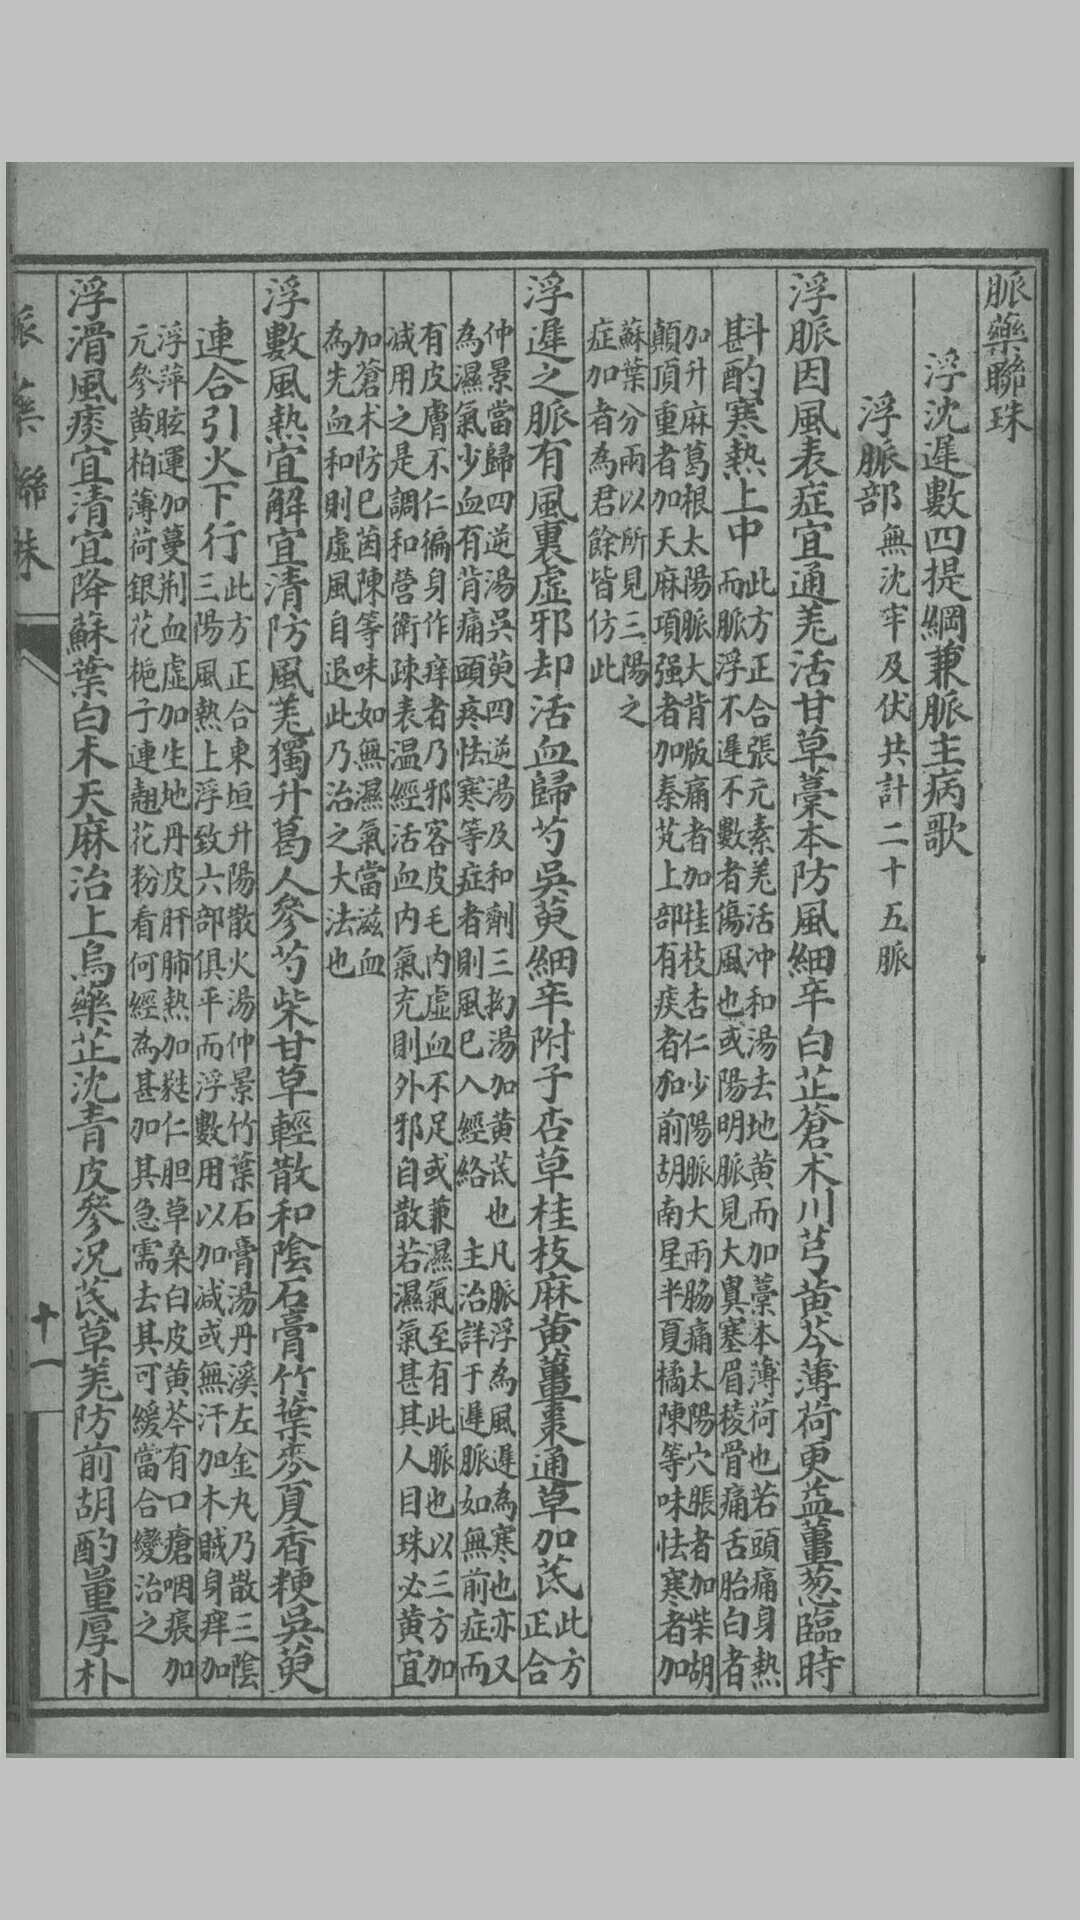 脈藥聯珠
浮沈遲數四提綱兼脈主病歌
浮脈部無沈牢及伏共計二十五脈
浮脈因風表症宜通羌活甘草藁本防風細辛白芷蒼术川芎黄芩薄荷更益薑葱臨時
斟酌寒熱上中
此方正合張元素羌活冲和湯去地黄而加藁本薄荷也若頭痛身熱
而脈浮不遲不數者傷風也或陽明脈見大鼻塞眉稜骨痛舌胎白者
加升麻葛根太陽脈大背版痛者加桂枝杏仁少陽脈大兩脇痛太陽穴脹者加柴胡
顛頂重者加天麻項强者加秦艽上部有痰者加前胡南星半夏橘陳等味怯寒者加
蘇葉分兩以所見三陽之
症加者為君餘皆仿此
浮遲之脈有風裏虛邪却活血歸芍吳萸細辛附子杏草桂枝麻黄薑棗通草加茋
此方
正合
仲景當歸四逆湯吳萸四逆湯及和劑三拗湯加黄茋也凡脈浮為風遲為寒也亦又
為濕氣少血有背痛頭疼怯寒等症者則風巳入經絡 主治詳于遲脈如無前症而
有皮膚不仁徧身作痒者乃邪客皮毛内虛血不足或兼濕氣至有此脈也以三方加
减用之是調和營衛疎表温經活血内氣充則外邪自散若濕氣甚其人目珠必黄宜
加蒼术防巳茵陳等味如無濕氣當滋血
為先血和則虛風自退此乃治之大法也
浮數風熱宜解宜清防風羌獨升葛人參芍柴甘草輕散和陰石膏竹葉麥夏香粳吳萸
連合引火下行
此方正合東垣升陽散火湯仲景竹葉石膏湯丹溪左金丸乃散三陰
三陽風熱上浮致六部俱平而浮數用以加减或無汗加木賊身痒加
浮萍眩運加蔓荆血虛加生地丹皮肝肺熱加蕤仁胆草桑白皮黄芩有口瘡咽痕加
元參黄柏薄荷銀花梔子連翹花粉看何經為甚加其急需去其可緩當合變治之
浮滑風痰宜清宜降蘇葉白术天麻治上烏藥芷沈青皮參况茋草羌防前胡酌量厚朴
脈藥聯珠
十一